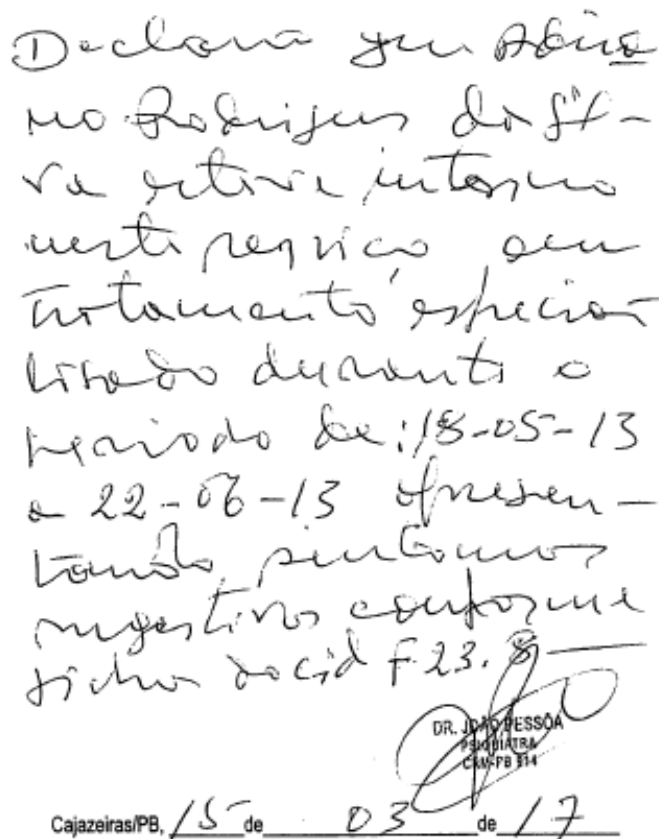 Declaro que Adria
no Rodrigues da Sil-
va esteve interno
neste serviço em
tratamento especia
lisado durante o
periodo de: 18-05-13
a 22-06-13 apresen-
tando sintomas
sugestivos conforme
ficha do cid F 23.8
DR. JOÃO PESSÔA
PSIQUIATRA
CRM-PB 814
Cajazeiras/PB, 15 de 03 de 17